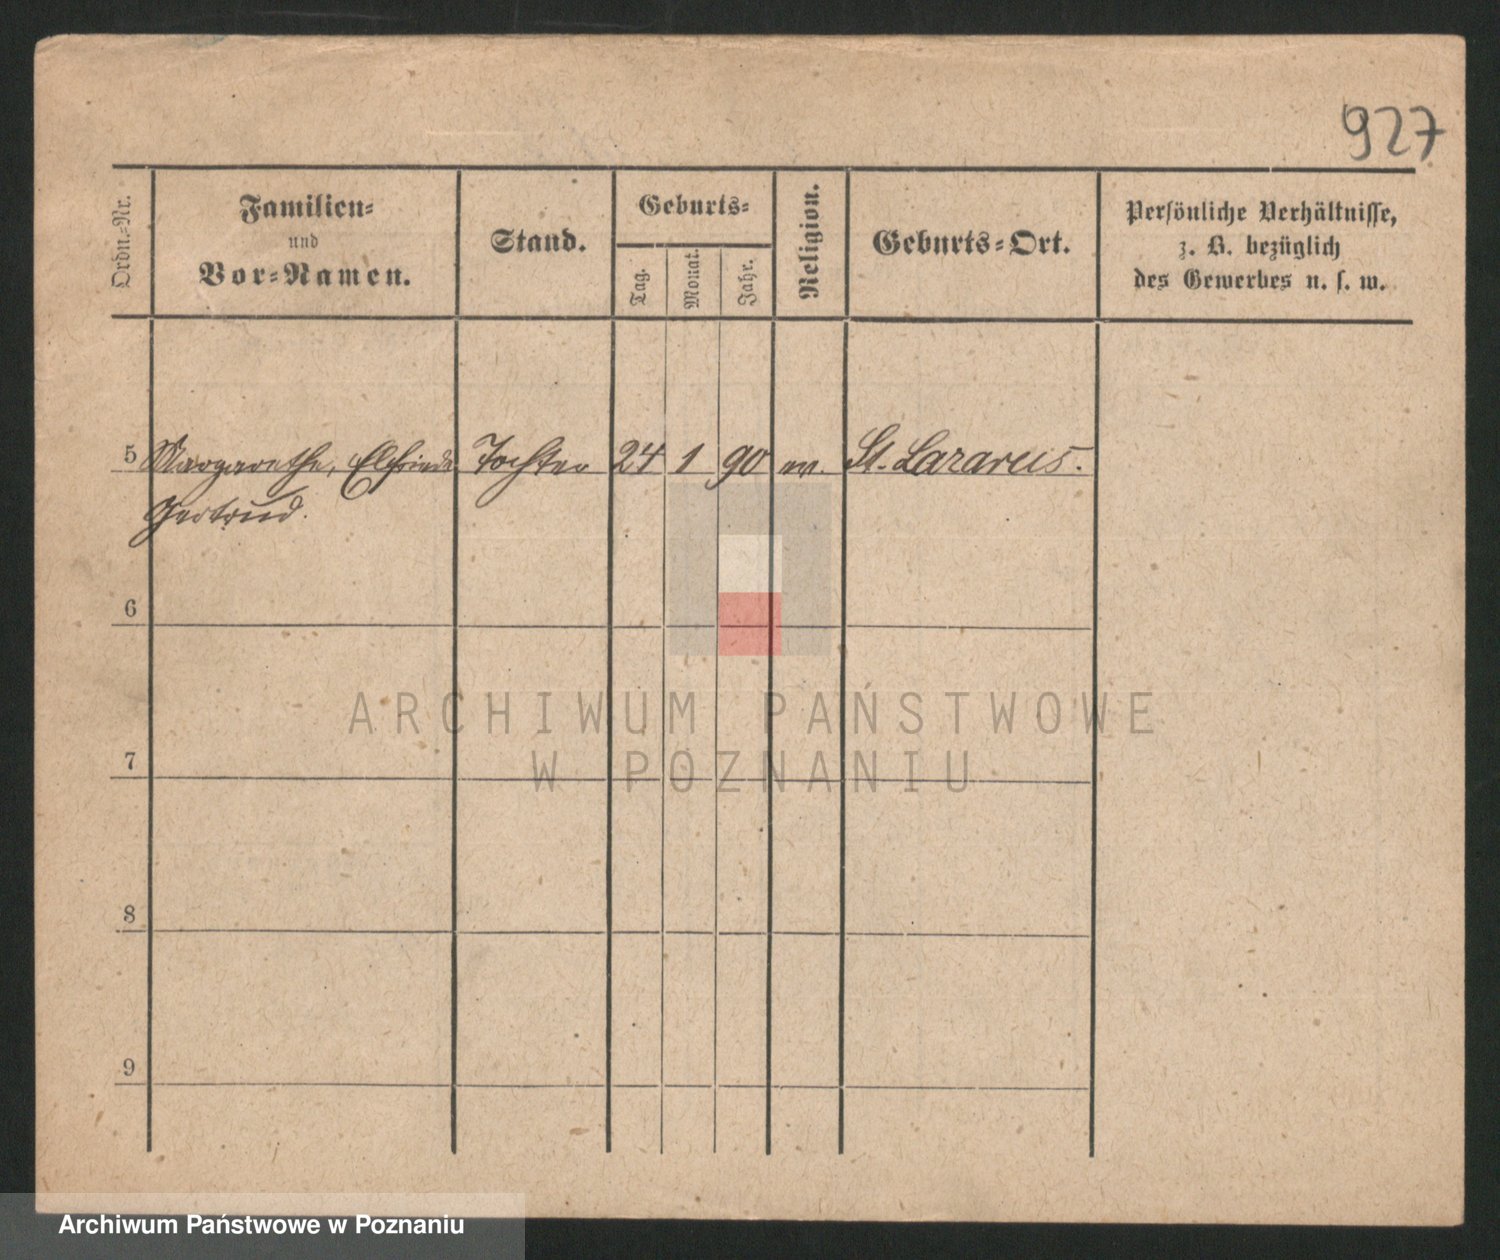 927
Ordn.-Nr.
Familien-
und
Vor-Namen.
Stand.
Geburts-
Tag.
Monat.
Jahr.
Religion.
Geburts-Ort.
Persönliche Verhältnisse,
z. B. bezüglich
des Gewerbes u. s. w.
5 Margarethe, Elfriede Tochter 24 1 90 St. Lazarus.
Gertrud.
6
7
8
9
ARCHIWUM PAŃSTWOWE
W POZNANIU
Archiwum Państwowe w Poznaniu